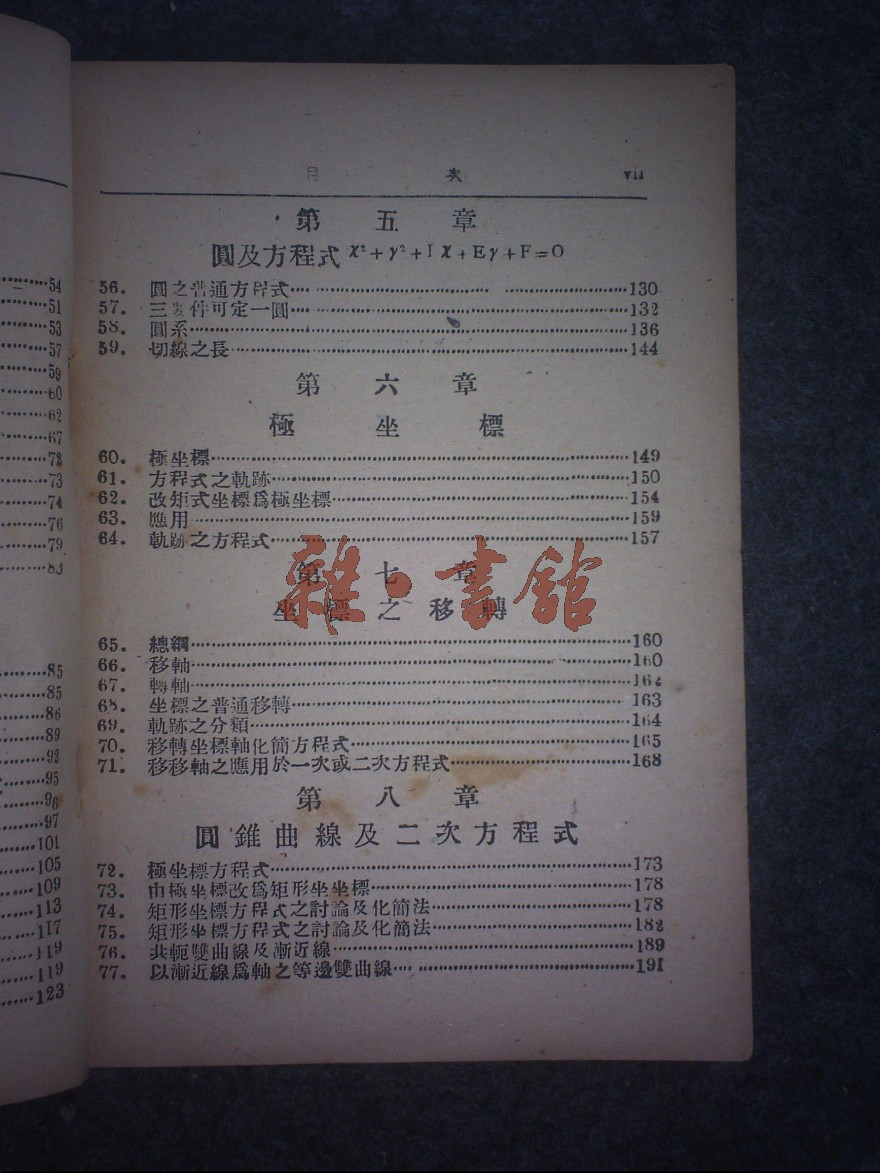 54
51
53
57
59
60
62
67
72
73
74
76
79
83
85
85
86
89
92
95
96
97
101
105
109
113
117
119
119
123
目 次 vii
第 五 章
圓及方程式 x²+y²+Dx+Ey+F=O
56. 圓之普通方程式 130
57. 三條件可定一圓 132
58. 圓系 136
59. 切線之長 144
第 六 章
極 坐 標
60. 極坐標 149
61. 方程式之軌跡 150
62. 改矩式坐標爲極坐標 154
63. 應用 159
64. 軌跡之方程式 157
第 七 章
坐 標 之 移 轉
65. 總綱 160
66. 移軸 160
67. 轉軸 162
68. 坐標之普通移轉 163
69. 軌跡之分類 164
70. 移轉坐標軸化簡方程式 165
71. 移移軸之應用於一次或二次方程式 168
第 八 章
圓錐曲線及二次方程式
72. 極坐標方程式 173
73. 由極坐標改爲矩形坐坐標 178
74. 矩形坐標方程式之討論及化簡法 178
75. 矩形坐標方程式之討論及化簡法 182
76. 共軛雙曲線及漸近線 189
77. 以漸近線爲軸之等邊雙曲線 191
雜·書館